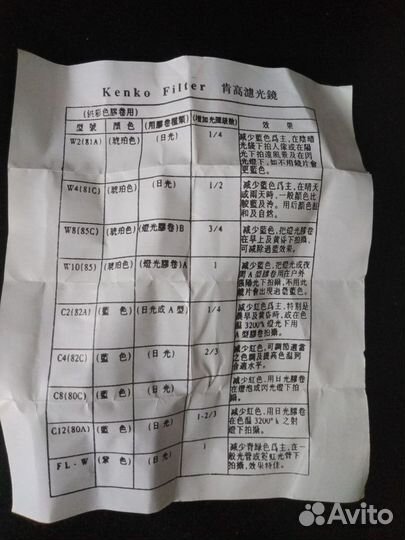 Kenko Filter 肯高濾光鏡
(供彩色膠卷用)
型號 顔色 (用膠卷種類) (增加光圈級數) 效果
W2(81A) (琥珀色) (日光) 1/4 减少藍色爲主,在陰晴
光綫下拍人像或在陽
光下拍遠風景及在閃
光燈下,如不用鏡片會
更藍色。
W4(81C) (琥珀色) (日光) 1/2 减少藍色爲主,在晴天
或雨天時,一般顔色比
較藍及冷。用后顔色温
和及自然。
W8(85C) (琥珀色) (燈光膠卷)B 3/4 减少藍色,把燈光膠卷
在早上及黄昏下拍攝,
可减除過藍效果。
W10(85) (琥珀色) (燈光膠卷)A 1 减少藍色,把燈光或夜
間A型膠卷用在户外
猛陽光下拍攝,不用此
鏡片會出現過度藍色。
C2(82A) (藍色) (日光或A型) 1/4 减少紅色爲主,特别是
晨早及黄昏時,或在色
温3200°k燈光下用
A型膠卷拍攝。
C4(82C) (藍色) (日光) 2/3 减少紅色,可調節適當
之色調及提高色温到
合適水平。
C8(80C) (藍色) (日光) 1 减少紅色,用日光膠卷
在燈泡或閃光燈下拍
攝。
C12(80A) (藍色) (日光) 1-2/3 减少紅色,用日光膠卷
在色温3200°k之射
燈下拍攝。
FL-W (紫色) (日光) 1 减少青綠色爲主,在一
般光管或霓虹光管下
拍攝,效果特佳。
Avito